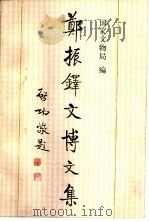 国家文物局 编
鄭振鐸文博文集
啟功敬題